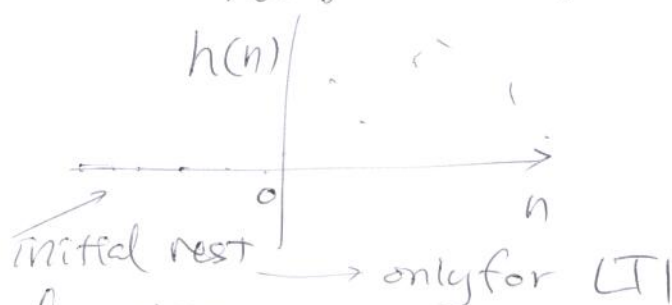 h(n)
0
n
initial rest → only for LTI